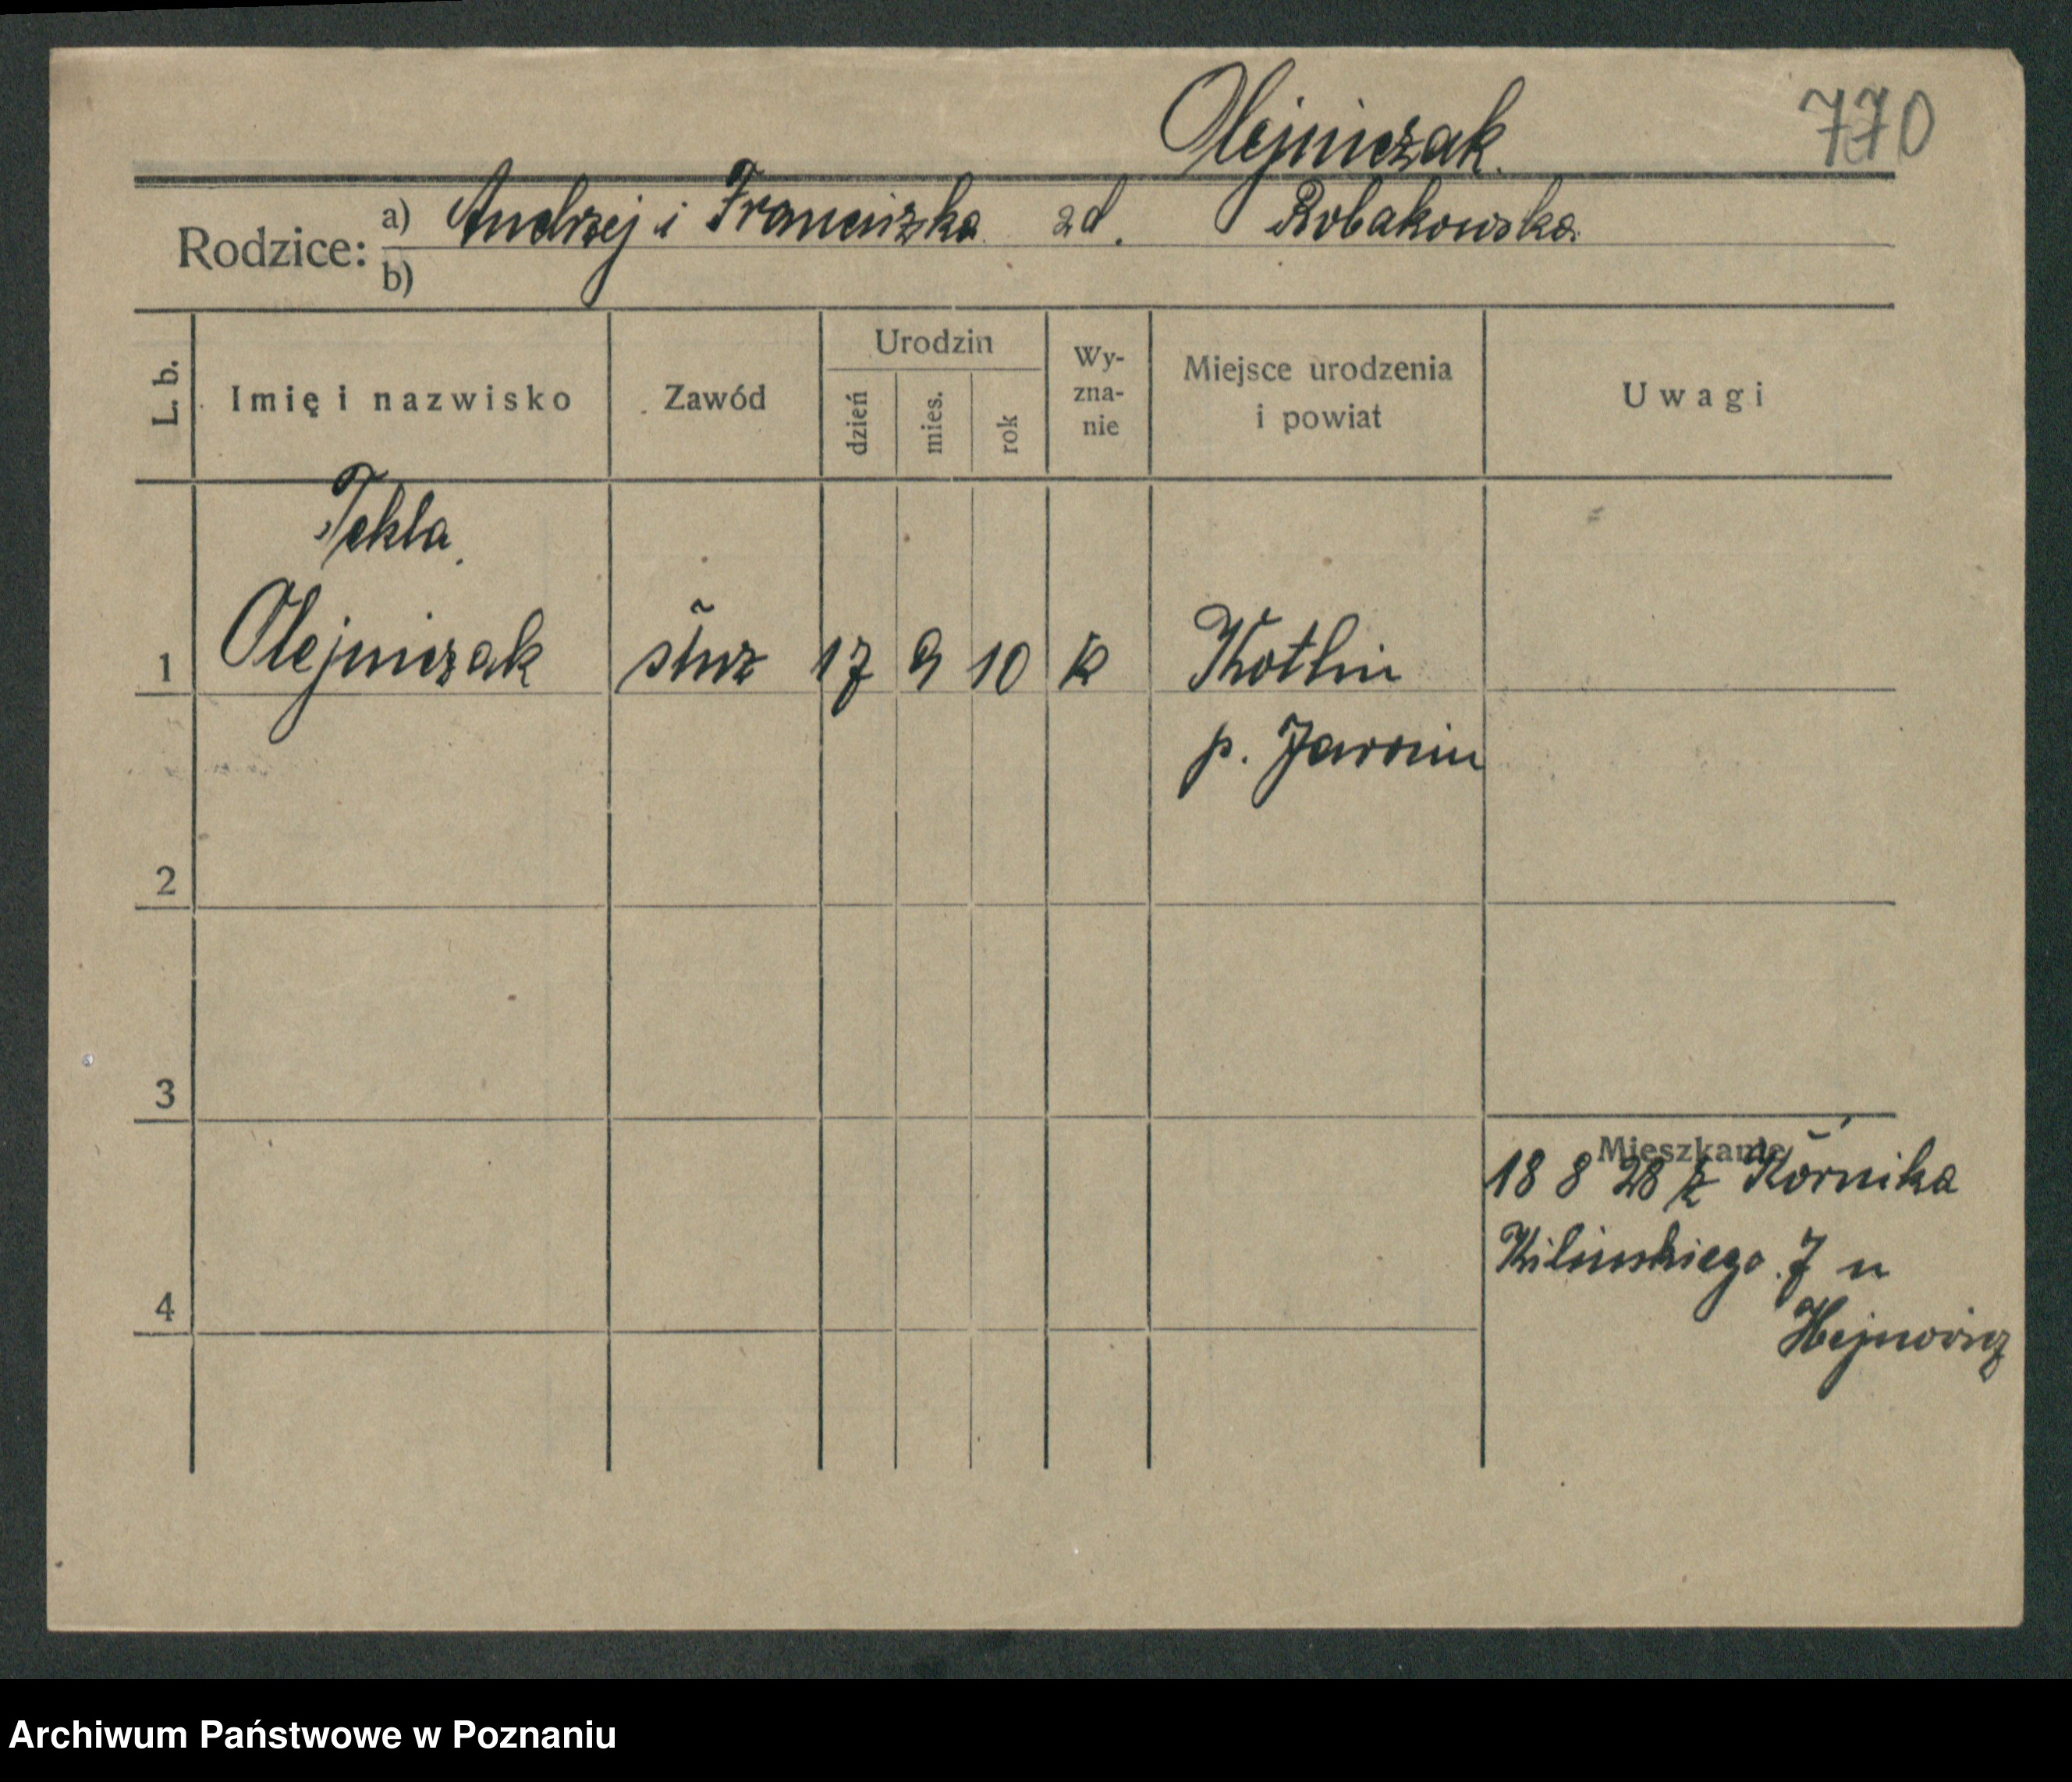 Olejniczak.
770
Rodzice: a) Andrzej i Franciszka zd. Robakowska
b)
L. b.
Imię i nazwisko
Zawód
Urodzin
dzień
mies.
rok
Wy-
zna-
nie
Miejsce urodzenia
i powiat
Uwagi
Tekla
1 Olejniczak służ 17 9 10 k Kotlin
p. Jarocin
2
3
Mieszkanie
18 8 28 z Kórnika
Kilinskiego 7 u
4
Archiwum Państwowe w Poznaniu